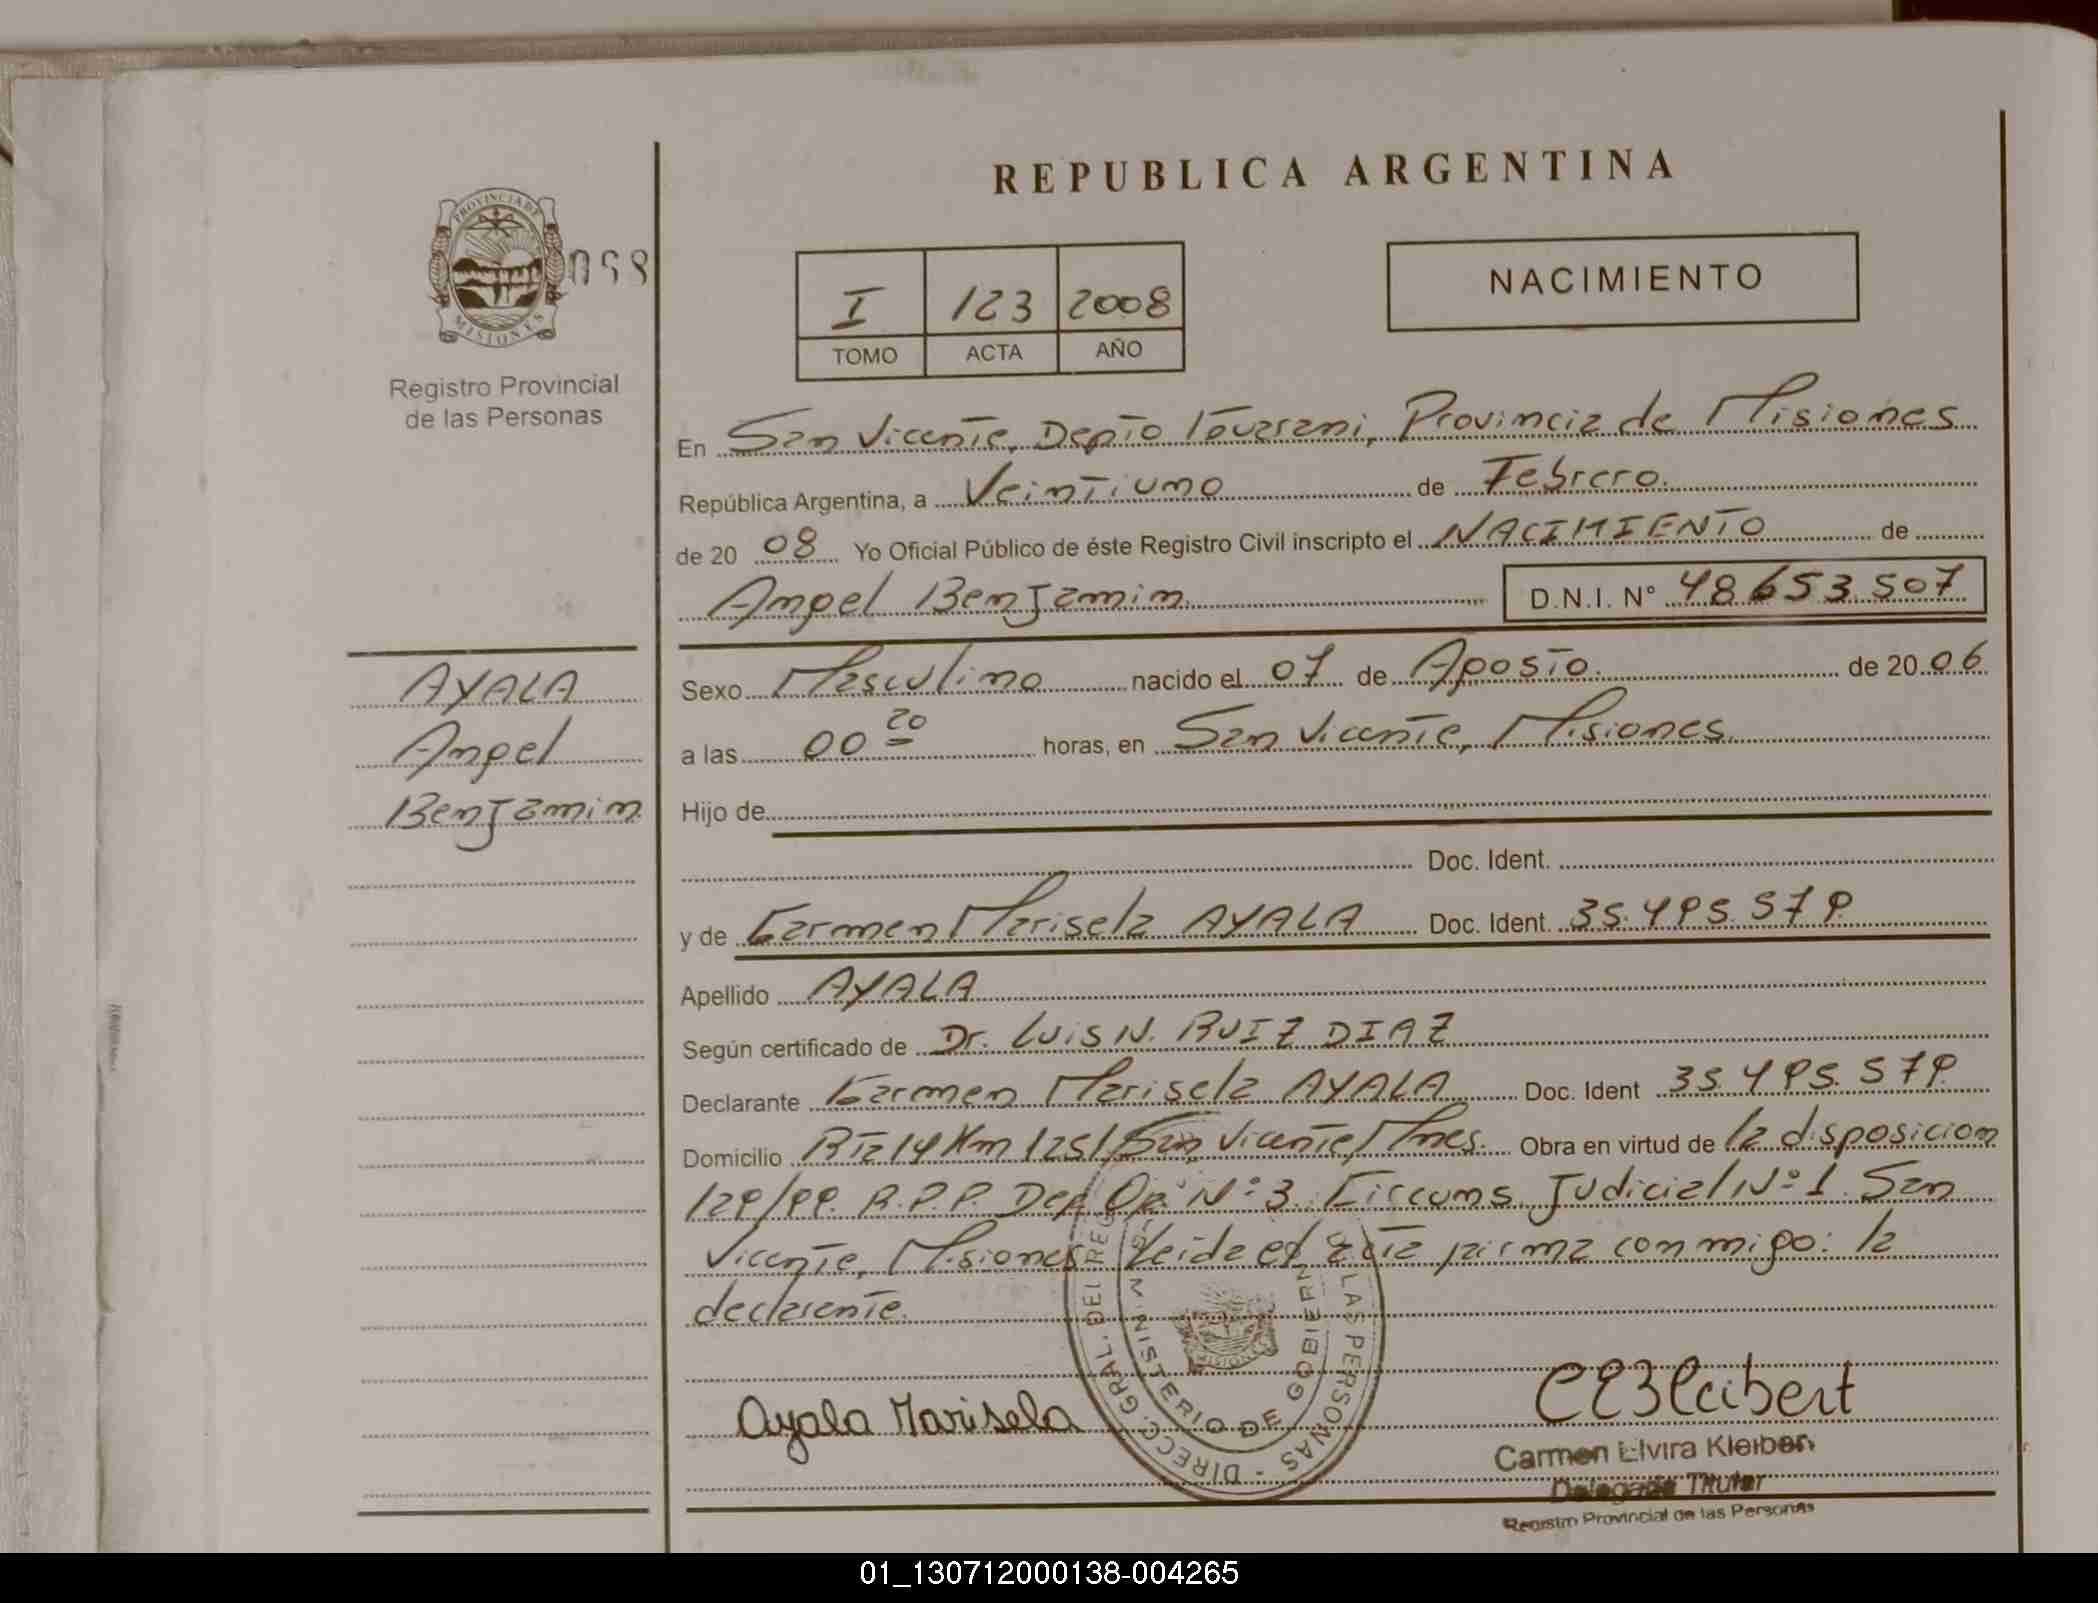 REPUBLICA ARGENTINA
PROVINCIA DE MISIONES
098
Registro Provincial
de las Personas
I 123 2008
TOMO ACTA AÑO
NACIMIENTO
En San Vicente, Depto Guarani, Provincia de Misiones
República Argentina, a Veintiuno de Febrero.
de 20 08 Yo Oficial Público de éste Registro Civil inscripto el NACIMIENTO de
Angel Benjamin. D.N.I. Nº 48 653 507
AYALA
Angel
Benjamin.
Sexo Masculino nacido el 07 de Agosto. de 20 06
a las 00 20 horas, en San Vicente, Misiones.
Hijo de
Doc. Ident.
y de Carmen Marisela AYALA Doc. Ident. 35.495.579.
Apellido AYALA
Según certificado de Dr. Luis N. RUIZ DIAZ
Declarante Carmen Marisela AYALA Doc. Ident 35.495.579.
Domicilio Rta 14 Km 1251 San Vicente, Mnes. Obra en virtud de la disposicion
129/99. R.P.P. Def. Of. Nº 3. Circuns. Judicial Nº 1. San
Vicente, Misiones. Leida el acta firma conmigo: la
declarante.
DIRECC. GRAL. DEL REG LAS PERSONAS -
MINISTERIO DE GOBIERN
MISIONES
Ayala Marisela
Carmen Elvira Kleiber
Delegada Titular
Registro Provincial de las Personas
01_130712000138-004265